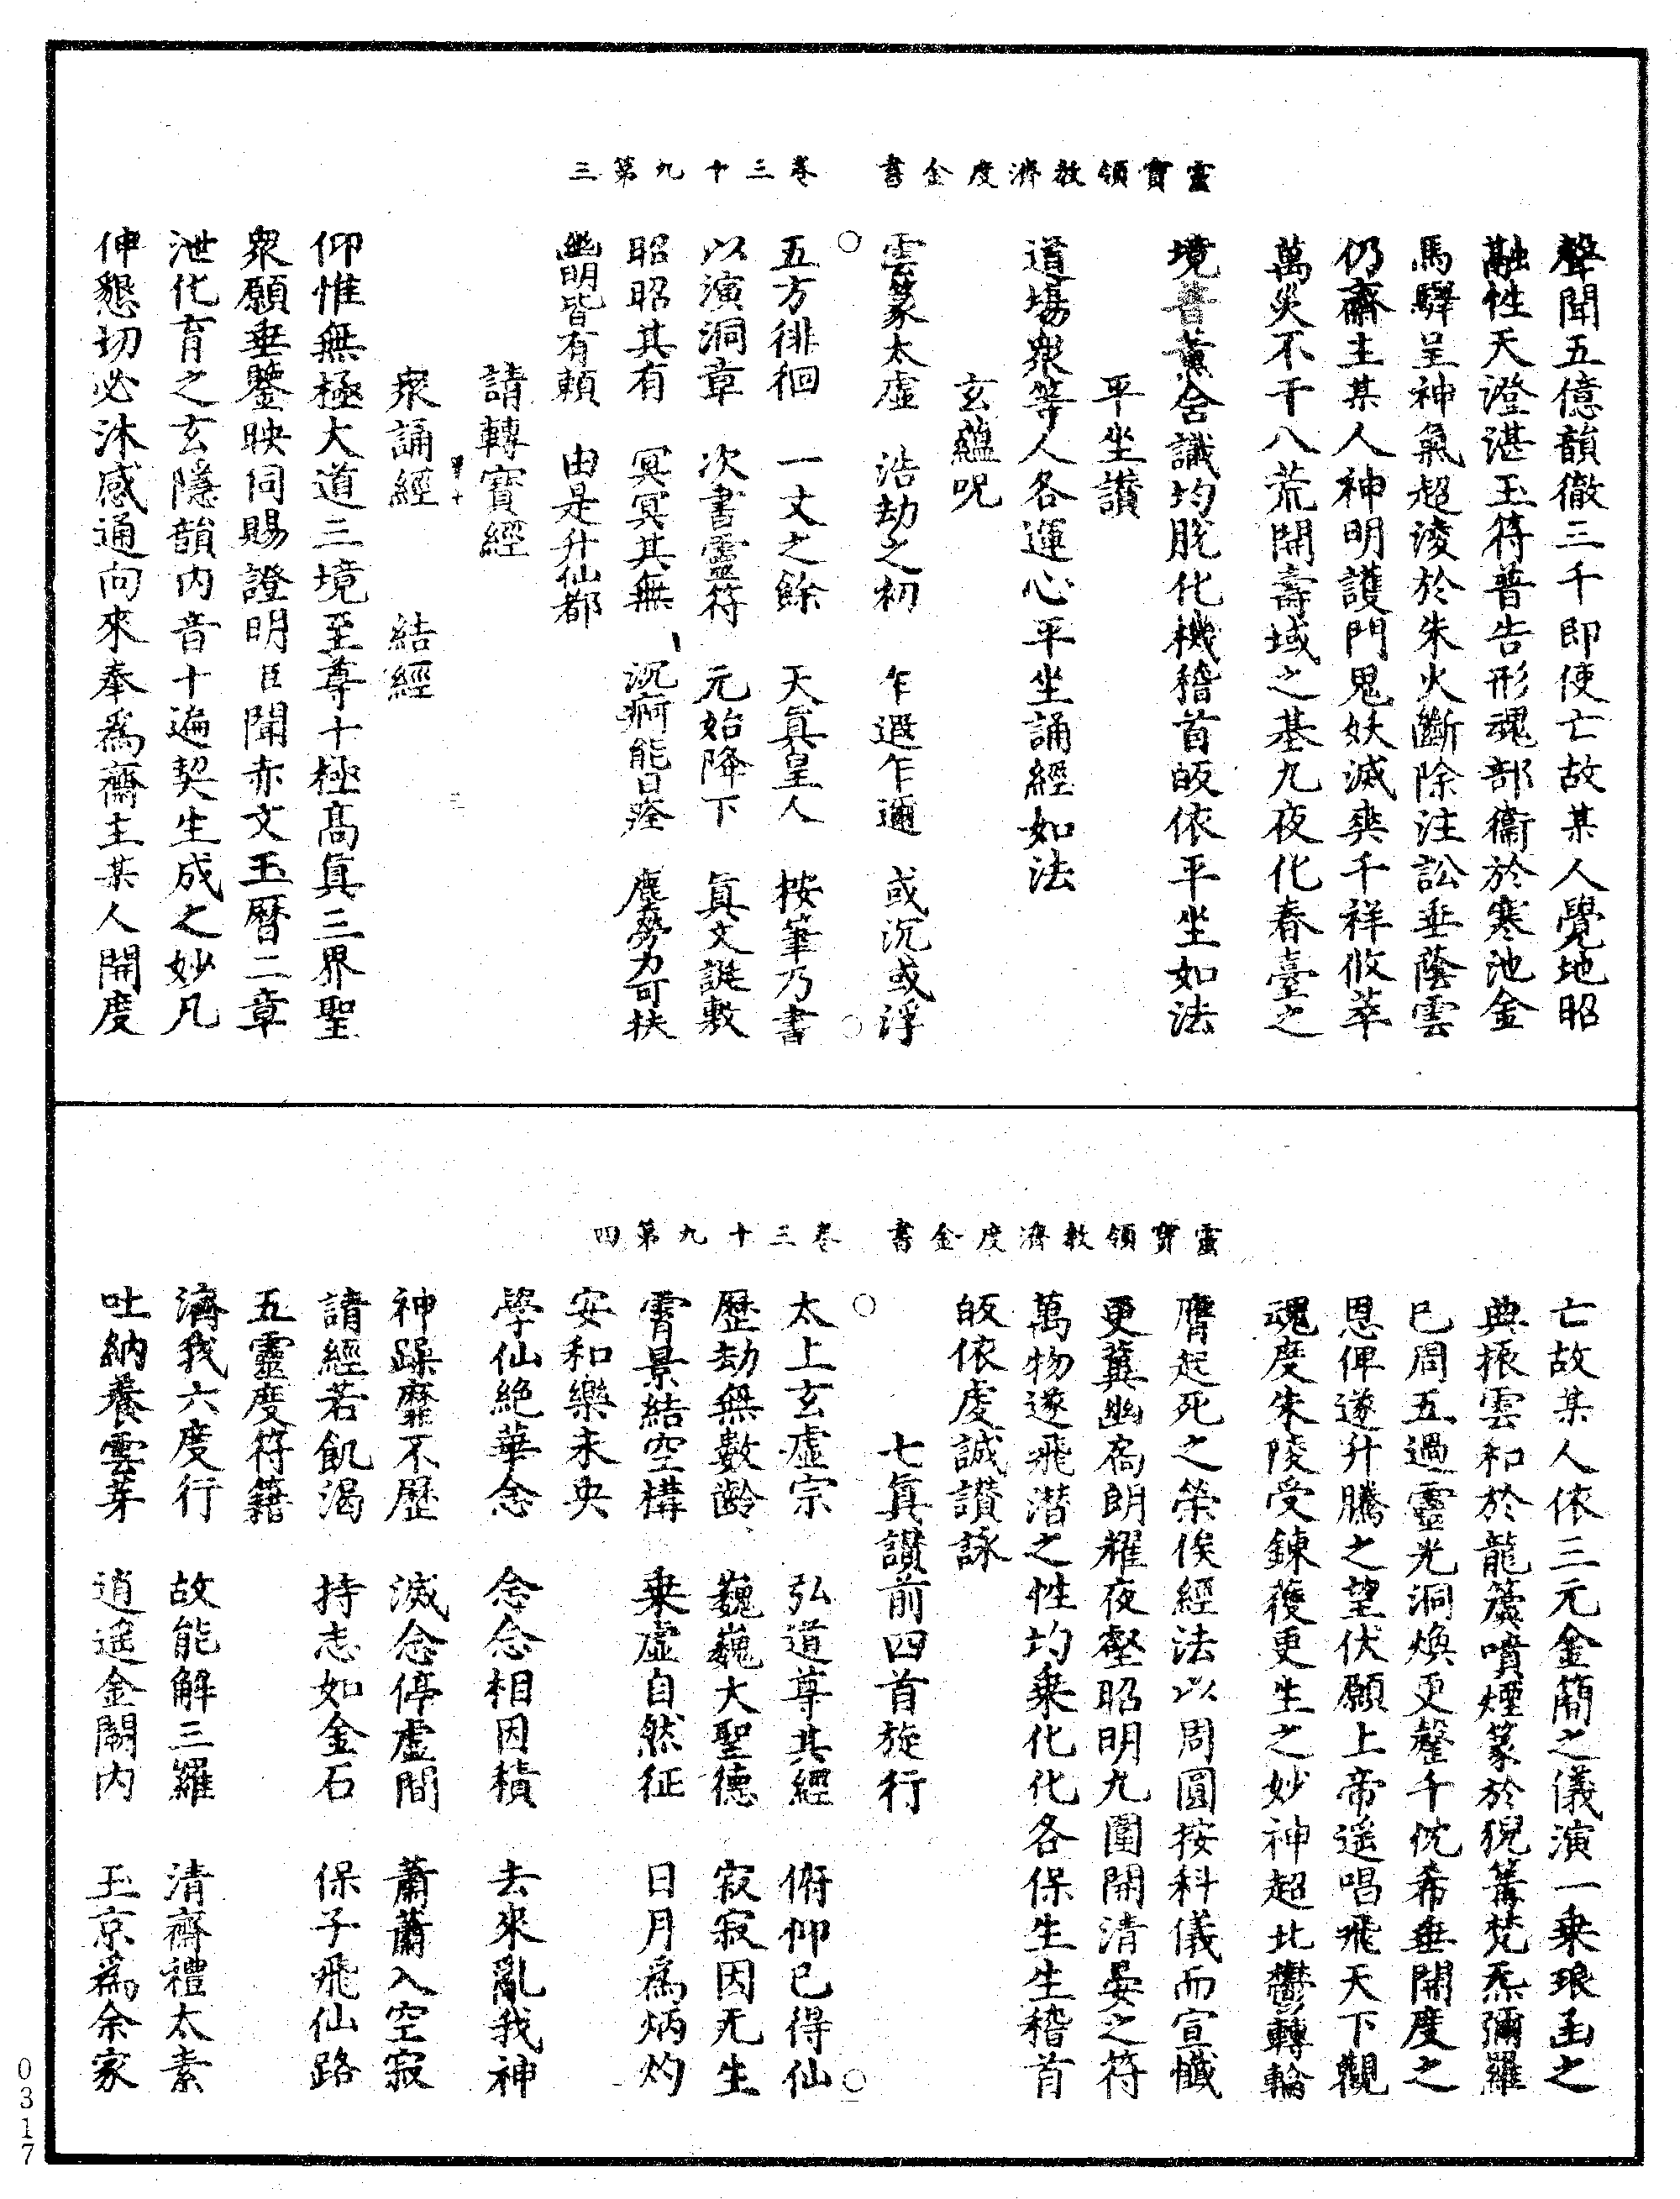 靈寶領教濟度金書　卷三十九第三
聲聞五億韻徹三千即使亡故某人覺地昭
融性天澄湛玉符普告形魂部衛於寒池金
馬驛呈神氣超淩於朱火斷除注訟垂蔭雲
仍齋主某人神明護門鬼妖滅爽千祥攸萃
萬災不干八荒開壽域之基九夜化春臺之
境普薰含識均脫化機稽首皈依平坐如法
平坐讚
道場衆等人各運心平坐誦經如法
玄蘊呪
雲篆太虛　浩劫之初　乍遐乍邇　或沉或浮
五方徘徊　一丈之餘　天真皇人　按筆乃書
以演洞章　次書靈符　元始降下　真文誕敷
昭昭其有　冥冥其無　沉痾能自痊　塵勞力可扶
幽明皆有賴　由是升仙都
請轉寶經
衆誦經　結經
仰惟無極大道三境至尊十極高真三界聖
衆願垂鑒映同賜證明臣聞赤文玉曆二章
泄化育之玄隱韻內音十遍契生成之妙凡
伸懇切必沐感通向來奉爲齋主某人開度
靈寶領教濟度金書　卷三十九第四
亡故某人依三元金簡之儀演一乗琅函之
典振雲和於龍簴噴煙篆於猊篝梵炁彌羅
已周五過靈光洞煥更罄千忱希垂開度之
恩俾遂升騰之望伏願上帝遥唱飛天下觀
魂度朱陵受鍊獲更生之妙神超北鬱轉輪
膺起死之榮俟經法以周圓按科儀而宣懺
更冀幽扃朗耀夜壑昭明九圍開清晏之符
萬物遂飛潛之性均乗化化各保生生稽首
皈依虔誠讃詠
七真讃前四首旋行
太上玄虛宗　弘道尊其經　俯仰已得仙
歷劫無數齡　巍巍大聖德　寂寂因无生
霄景結空構　乗虛自然征　日月爲炳灼
安和樂未央
學仙絶華念　念念相因積　去來亂我神
神躁靡不歷　滅念停虛閒　蕭蕭入空寂
請經若飢渴　持志如金石　保子飛仙路
五靈度符籍
濟我六度行　故能解三羅　清齋禮太素
吐納養雲芽　逍遥金闕內　玉京爲余家
0317